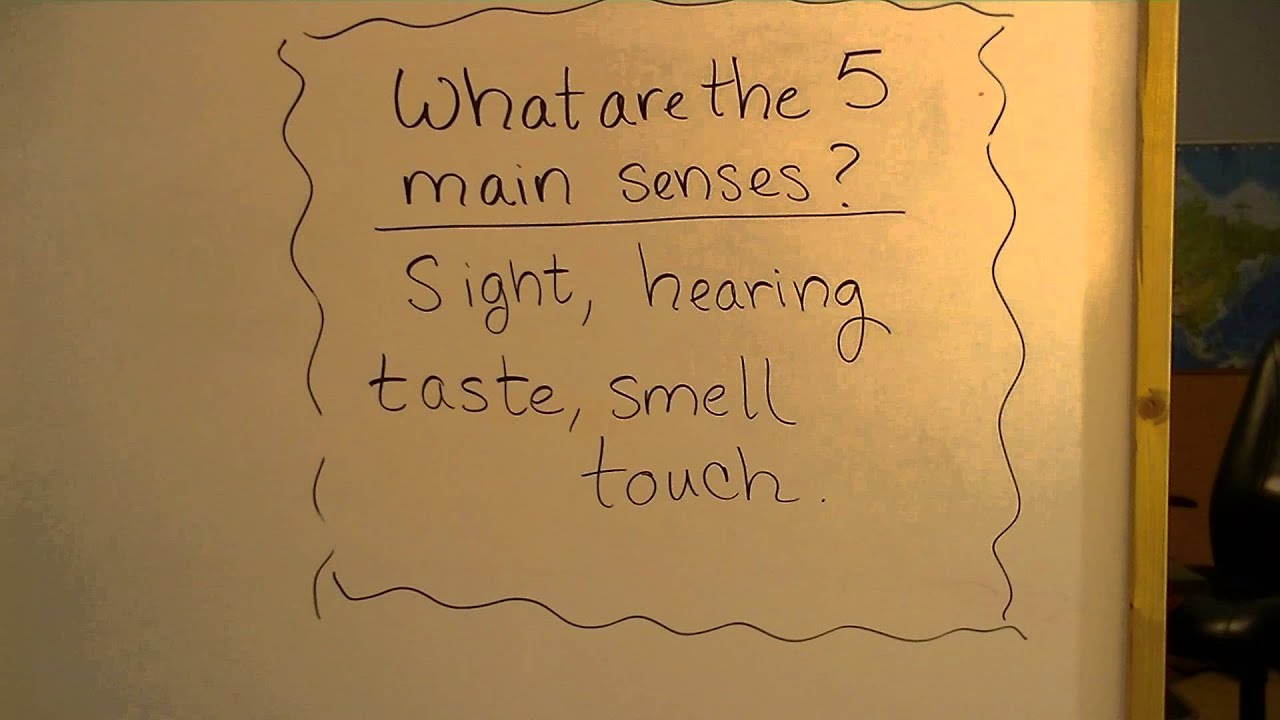 What are the 5
main senses?
Sight, hearing
taste, smell
touch.